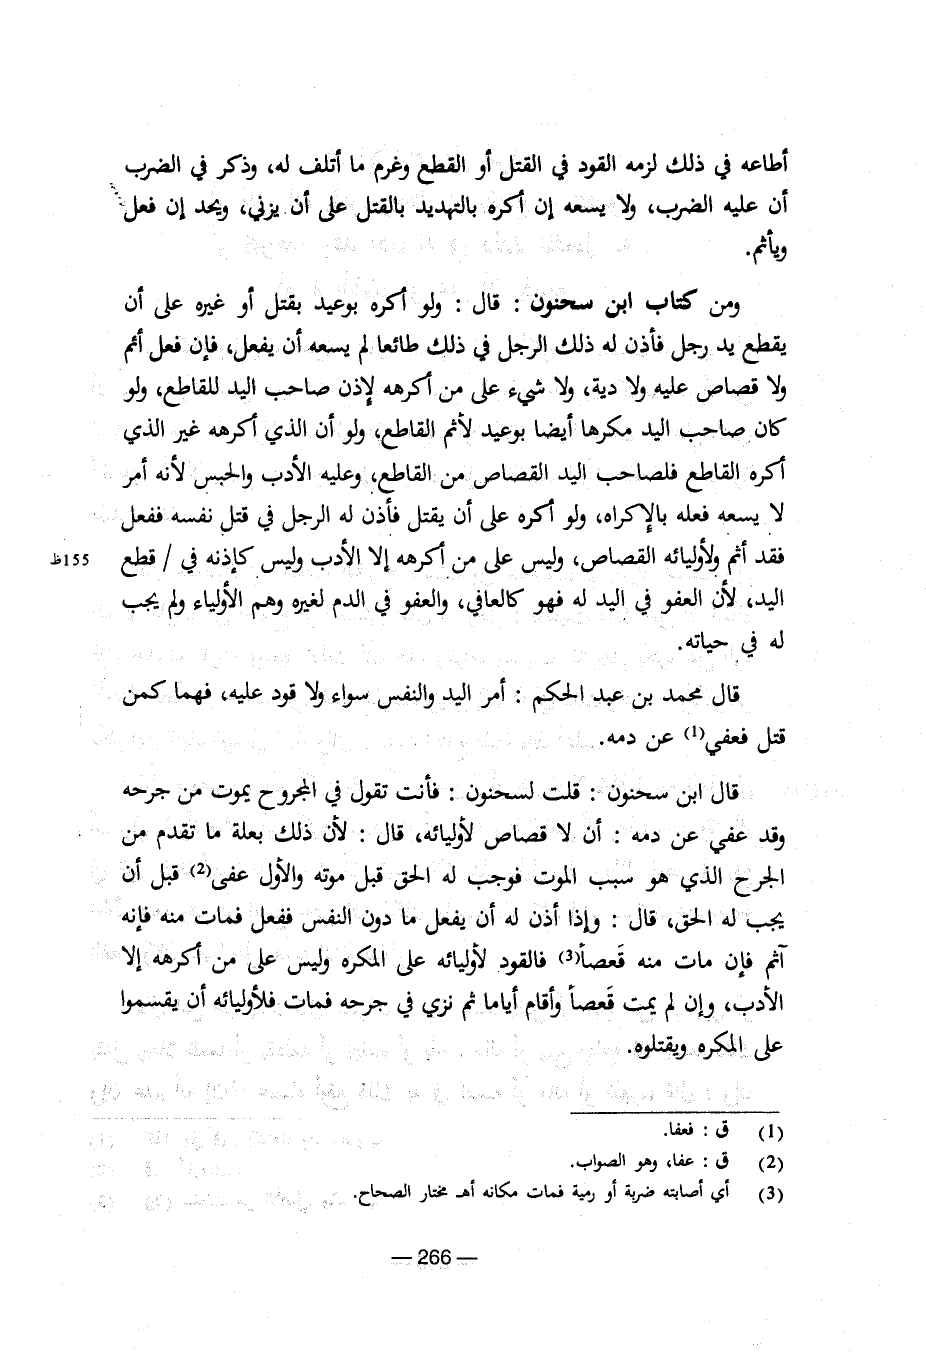 أطاعه في ذلك لزمه القود في القتل أو القطع وغرم ما أتلف له، وذكر في الضرب
أن عليه الضرب، ولا يسعه إن أكره بالتهديد بالقتل على أن يزني، ويحد إن فعل
ويأثم.
ومن كتاب ابن سحنون : قال : ولو أكره بوعيد بقتل أو غيره على أن
يقطع يد رجل فأذن له ذلك الرجل في ذلك طائعا لم يسعه أن يفعل، فإن فعل أثم
ولا قصاص عليه ولا دية، ولا شيء على من أكرهه لإذن صاحب اليد للقاطع، ولو
كان صاحب اليد مكرها أيضا بوعيد لأثم القاطع، ولو أن الذي أكرهه غير الذي
أكره القاطع فلصاحب اليد القصاص من القاطع، وعليه الأدب والحبس لأنه أمر
لا يسعه فعله بالإكراه، ولو أكره على أن يقتل فأذن له الرجل في قتل نفسه ففعل
فقد أثم ولأوليائه القصاص، وليس على من أكرهه إلا الأدب وليس كإذنه في / قطع
155ظ
اليد، لأن العفو في اليد له فهو كالعافي، والعفو في الدم لغيره وهم الأولياء ولم يجب
له في حياته.
قال محمد بن عبد الحكم : أمر اليد والنفس سواء ولا قود عليه، فهما كمن
قتل فعفي(1) عن دمه.
قال ابن سحنون : قلت لسحنون : فأنت تقول في المجروح يموت من جرحه
وقد عفي عن دمه : أن لا قصاص لأوليائه، قال : لأن ذلك بعلة ما تقدم من
الجرح الذي هو سبب الموت فوجب له الحق قبل موته والأول عفى(2) قبل أن
يجب له الحق، قال : وإذا أذن له أن يفعل ما دون النفس ففعل فمات منه فإنه
آثم فإن مات منه قَعصاً(3) فالقود لأوليائه على المكره وليس على من أكرهه إلا
الأدب، وإن لم يمت قَعصاً وأقام أياما ثم نزي في جرحه فمات فلأوليائه أن يقسموا
على المكره ويقتلوه.
(1) ق : فعفا.
(2) ق : عفا، وهو الصواب.
(3) أي أصابته ضربة أو رمية فمات مكانه أهـ مختار الصحاح.
— 266 —